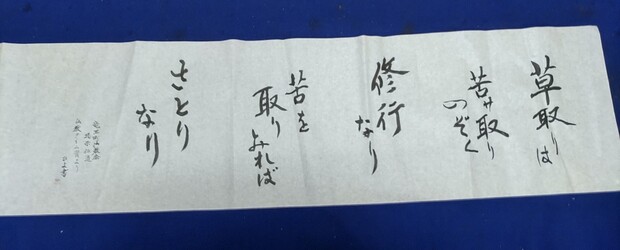 草取りは
苦サ取り
のぞく
修行
なり
苦を
取り
みれば
さとり
なり